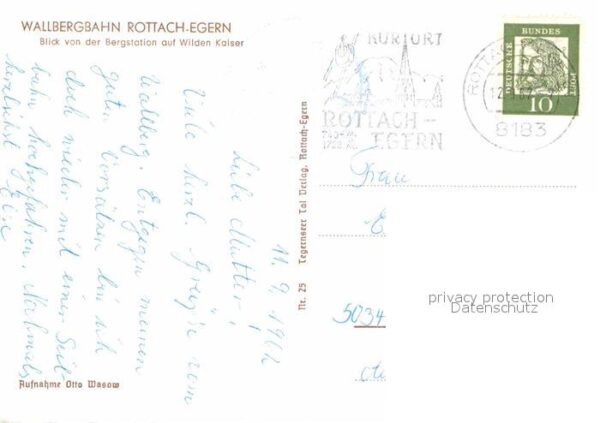 WALLBERGBAHN ROTTACH-EGERN
Blick von der Bergstation auf Wilden Kaiser
11. 9. 1962
Liebe Mutter,
Viele herzl. Grüße vom
Wallberg. Entgegen meinen
guten Vorsätzen bin ich
doch wieder mit einer Seil-
bahn hochgefahren. Nochmals
herzlichst
Aufnahme Otto Wasow
Nr. 25 Tegernseer Tal Verlag, Rottach-Egern
KURORT
ROTTACH-
EGERN
ROTTACH
12.
8183
DEUTSCHE BUNDES POST
10
Frau
E
5034
privacy protection
Datenschutz